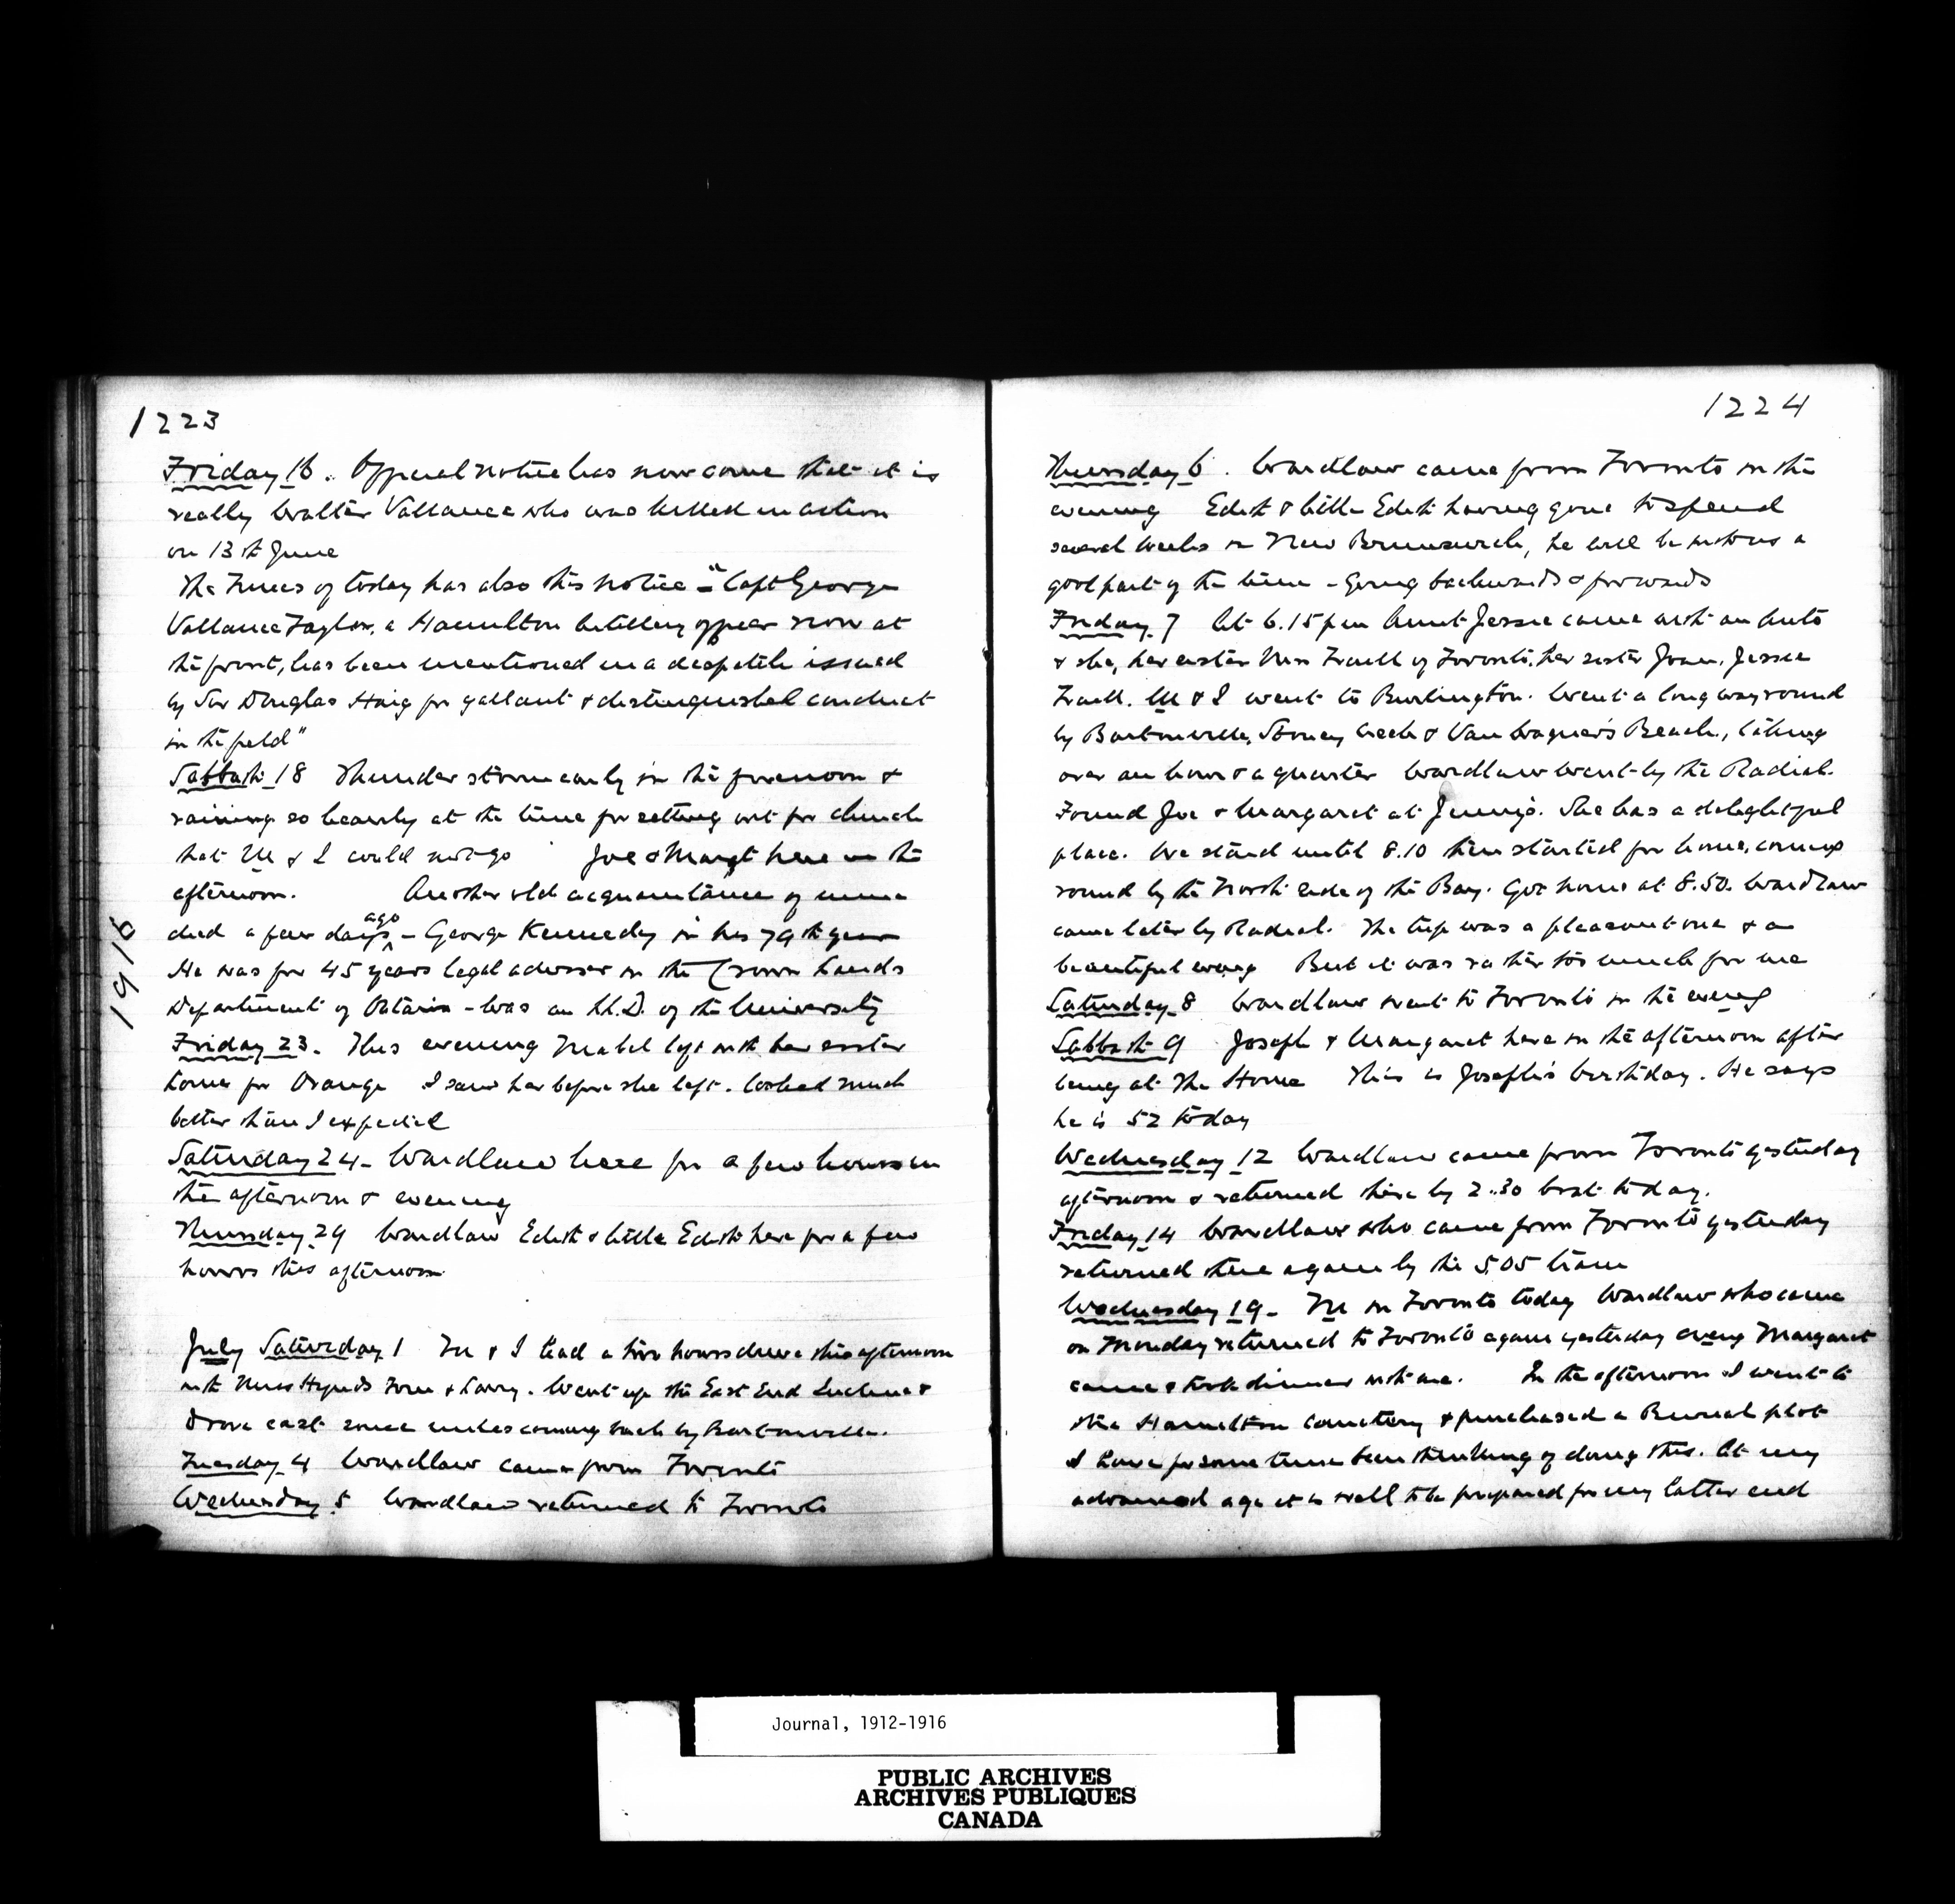 1223
Friday 16. Official notice has now come that it is
really Walter Vallance who was killed in action
on 13th June
The Times of today has also this notice - "Capt George
Vallance Taylor, a Hamilton artillery officer now at
the front, has been mentioned in a despatch issued
by Sir Douglas Haig for gallant & distinguished conduct
in the field"
Sabbath 18 Thunder storm early in the forenoon &
raining so heavily at the time for setting out for church
that M & I could not go Joe & Margt here in the
afternoon. Another old acquaintance of mine
died a few days ago - George Kennedy in his 79th year
He was for 45 years legal adviser in the Crown Lands
Department of Ontario - was an LL.D. of the University
1916
Friday 23. This evening Mabel left with her sister
for Orange I saw her before she left. looked much
better than I expected
Saturday 24 - Wardlaw here for a few hours in
the afternoon & evening
Thursday 29 Wardlaw Edith & little Edith here for a few
hours this afternoon
July Saturday 1 M & I had a two hours drive this afternoon
with Miss Hynds & Larry. Went up the East End Incline &
drove east some miles coming back by Bartonville.
Tuesday 4 Wardlaw came from Toronto
Wednesday 5 Wardlaw returned to Toronto
1224
Thursday 6. Wardlaw came from Toronto in the
evening Edith & little Edith having gone to spend
several weeks in New Brunswick, he will be with us a
good part of the time - going backwards & forwards
Friday 7 At 6.15 pm Aunt Jessie came with an auto
& she, her sister Mrs Traill of Toronto, her sister Joan, Jessie
Traill. M & I went to Burlington. Went a long way round
by Bartonville, Stoney Creek & Van Wagner's Beach, taking
over an hour & a quarter Wardlaw went by the Radial.
Found Joe & Margaret at Jenny's. She has a delightful
place. We staid until 8.10 then started for home, coming
round by the North side of the Bay. Got home at 8.50. Wardlaw
came later by Radial. The trip was a pleasant one & a
beautiful eveng But it was rather too much for me
Saturday 8 Wardlaw went to Toronto in the eveng
Sabbath 9 Joseph & Margaret here in the afternoon after
being at The Home This is Joseph's birthday. He says
he is 52 today
Wednesday 12 Wardlaw came from Toronto yesterday
afternoon & returned there by 2.30 boat today.
Friday 14 Wardlaw who came from Toronto yesterday
returned there again by the 5.05 train
Wednesday 19 - M in Toronto today Wardlaw who came
on Monday returned to Toronto again yesterday eveng Margaret
came & took dinner with me. In the afternoon I went to
the Hamilton Cemetery & purchased a Burial plot
I have for some time been thinking of doing this. At my
advanced age it is well to be prepared for my latter end
Journal, 1912-1916
PUBLIC ARCHIVES
ARCHIVES PUBLIQUES
CANADA